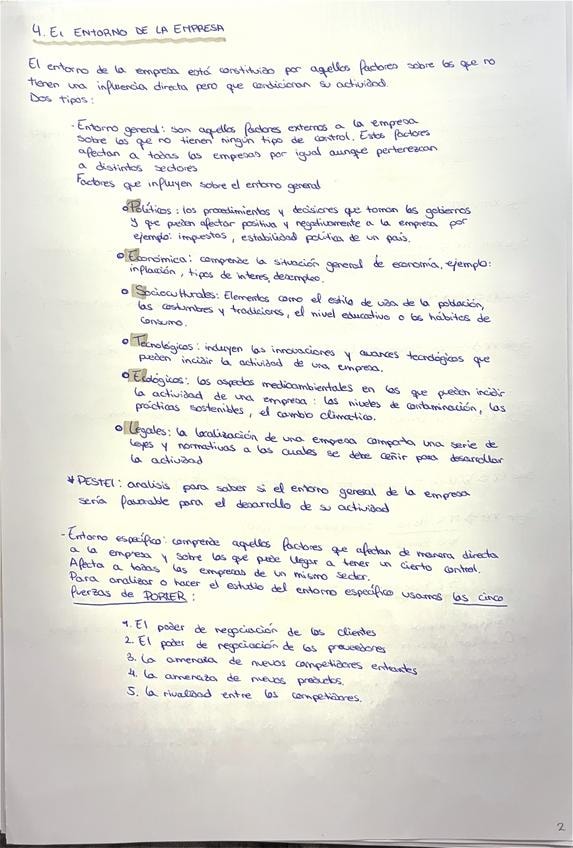 4. El ENTORNO DE LA EMPRESA
El entorno de la empresa está constituizo por aquellos factores sobre los que no
tienen una influencia directa pero que condicionan su actividad.
Dos tipos:
- Entorno general: son aquellos factores externos a la empresa
sobre los que no tienen ningún tipo de control. Estos factores
afectan a todas las empresas por igual aunque pertenezcan
a distintos sectores
Factores que influyen sobre el entorno general
Políticos: los procedimientos y decisiones que toman los gobiernos
y que pueden afectar positiva y negativamente a la empresa por
ejemplo: impuestos, estabilidad política de un país.
Económica: comprende la situación general de economía, ejemplo:
inflación, tipos de interes, desempleo.
Socioculturales: Elementos como el estilo de vida de la población,
las costumbres y tradiciones, el nivel educativo o los hábitos de
consumo.
Tecnológicos: incluyen las innovaciones y avances tecnológicos que
pueden incidir la actividad de una empresa.
Ecológicos: los aspectos medioambientales en los que pueden incidir
la actividad de una empresa: los niveles de contaminación, las
prácticas sostenibles, el cambio climatico.
Legales: la localización de una empresa comporta una serie de
leyes y normativas a las cuales se debe ceñir para desarrollar
la actividad
* PESTEL: analisis para saber si el entorno general de la empresa
sería favorable para el desarrollo de su actividad
- Entorno específico: comprende aquellos factores que afectan de manera directa
a la empresa y sobre los que puede llegar a tener un cierto control.
Afecta a todas las empresas de un mismo sector.
Para analizar o hacer el estudio del entorno específico usamos las cinco
fuerzas de PORTER:
1. El poder de negociación de los clientes
2. El poder de negociación de los proveedores
3. La amenaza de nuevos competidores entrantes
4. La amenaza de nuevos productos.
5. La rivalidad entre los competidores.
2